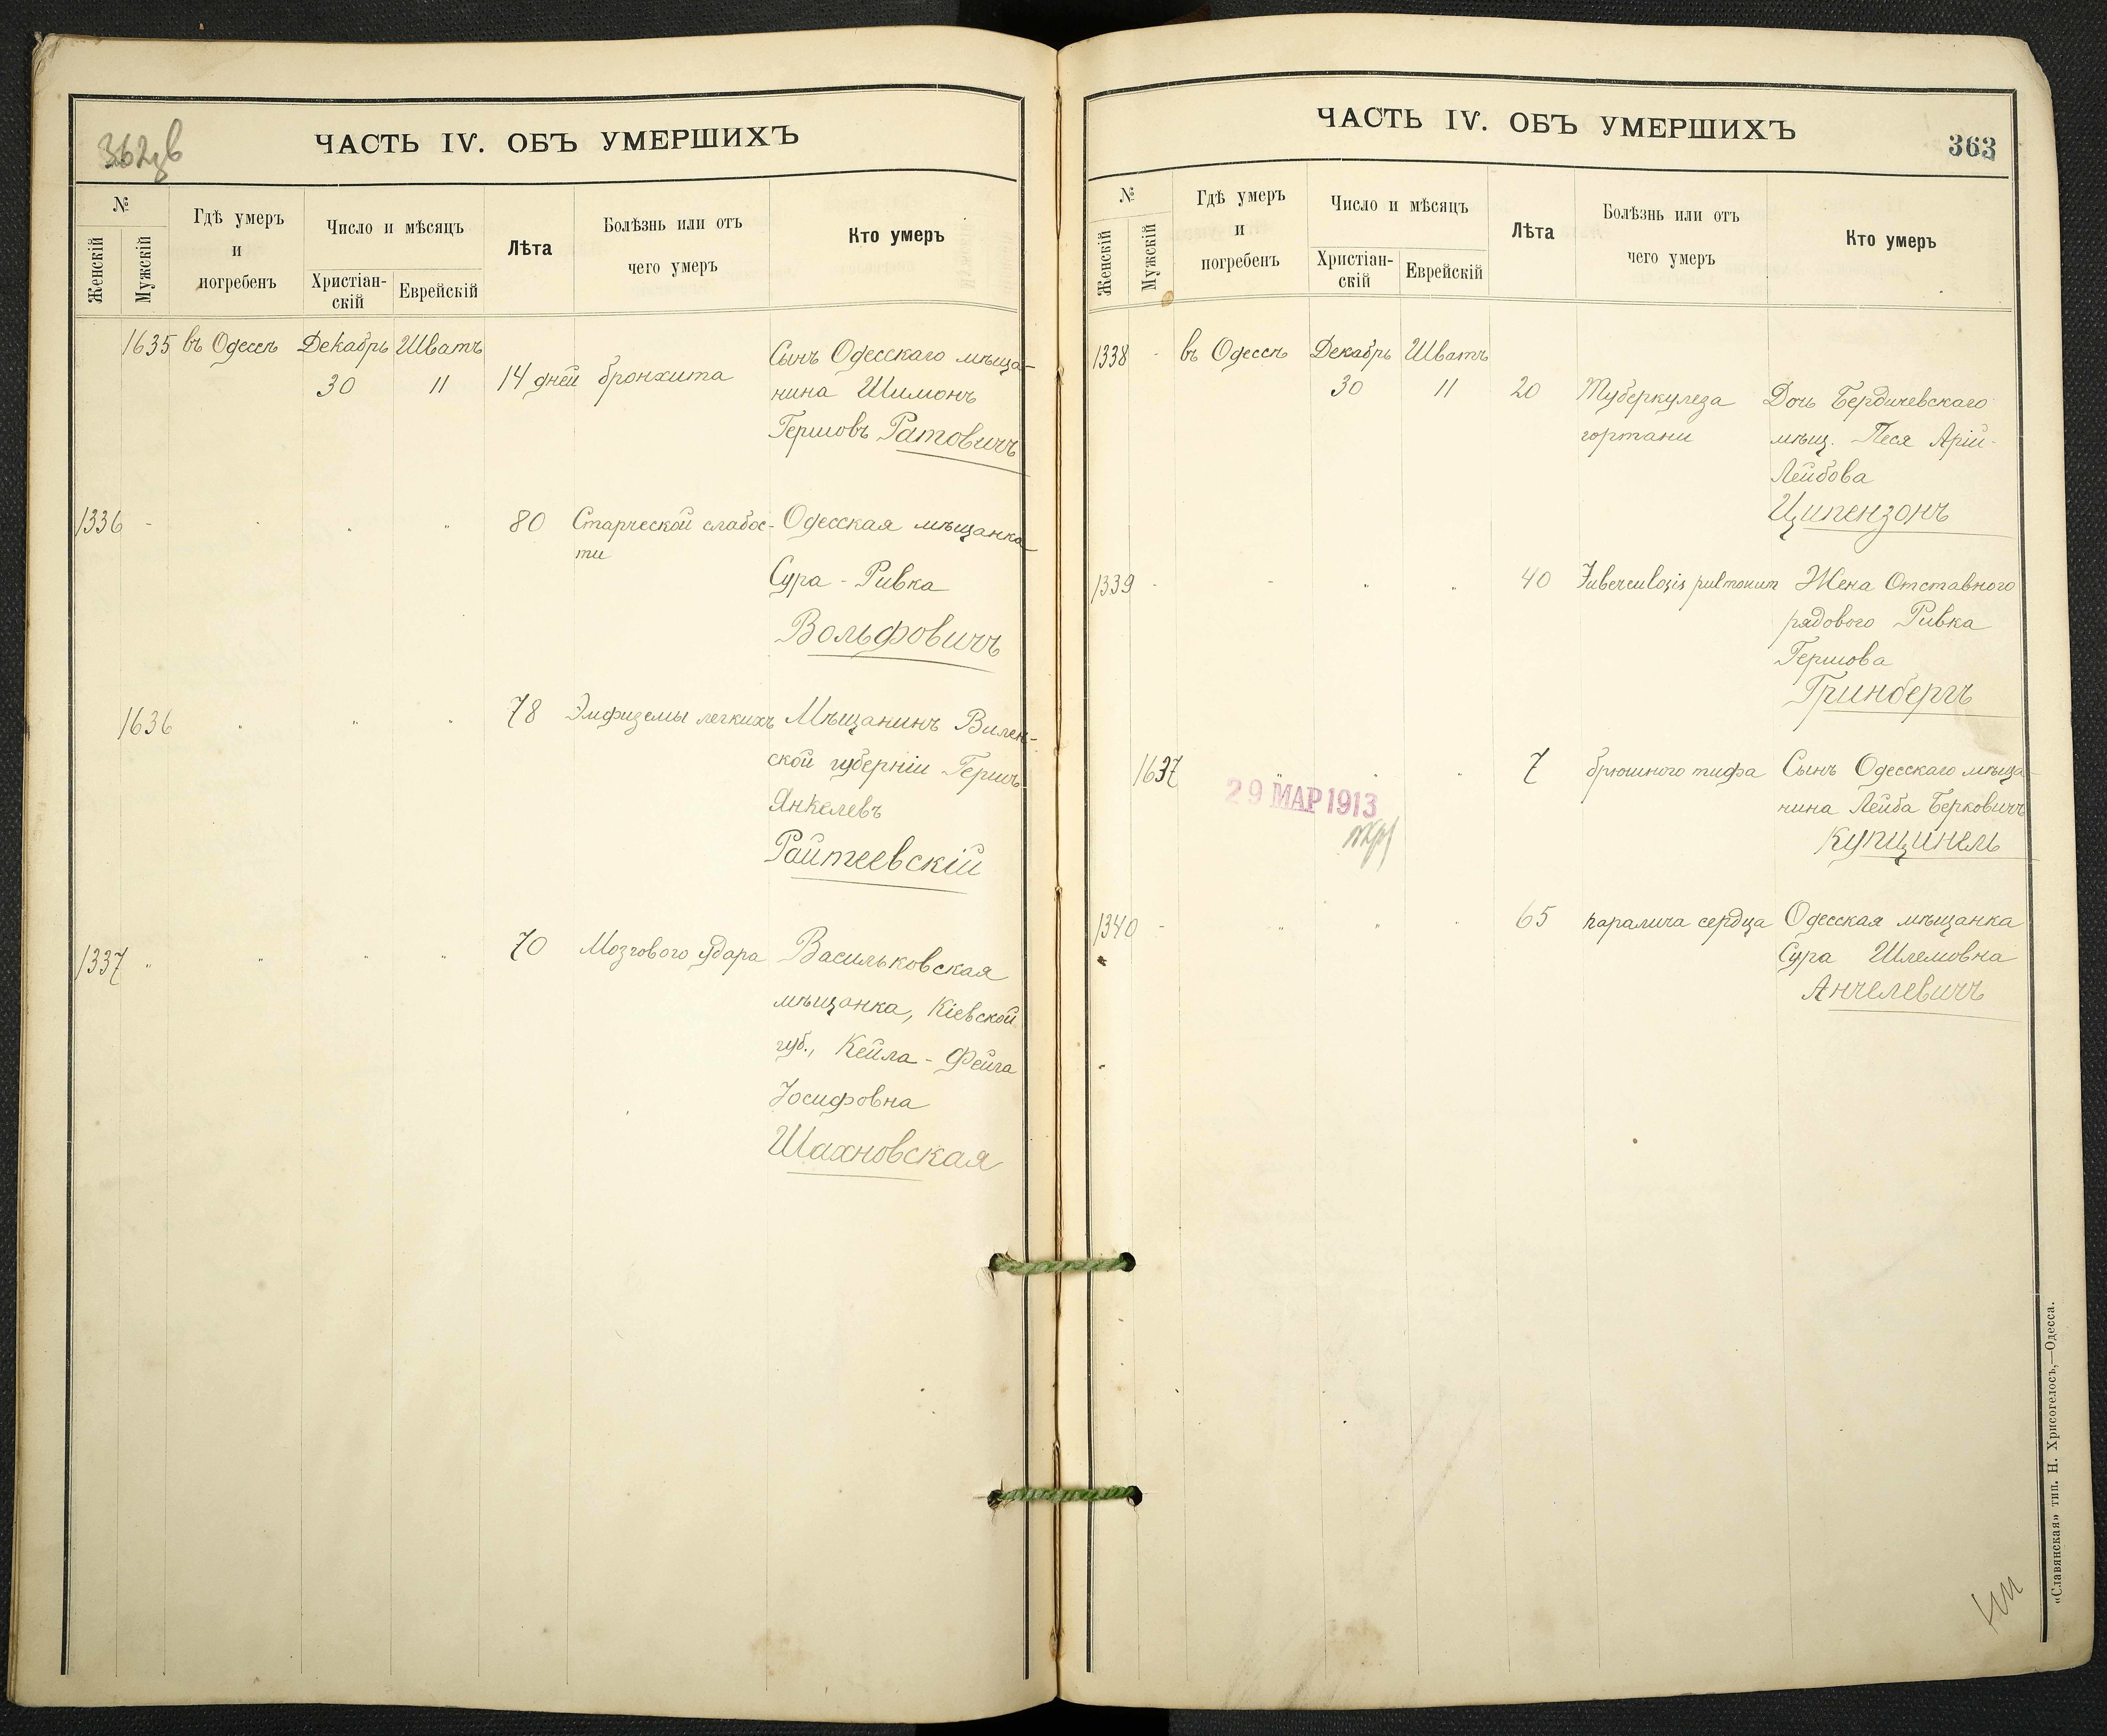 362 об
ЧАСТЬ IV. ОБЪ УМЕРШИХЪ
№
Женскій
Мужскій
Гдѣ умеръ
и
погребенъ
Число и мѣсяцъ
Христіан-
скій
Еврейскій
Лѣта
Болѣзнь или отъ
чего умеръ
Кто умеръ
1635 въ Одессѣ Декабрь Шватъ
30 11 14 дней бронхита
Сынъ Одесскаго мѣща-
нина Шимонъ
Гершовъ Ратовичъ
1336 - " " " 80 Старческой слабос-
ти
Одесская мѣщанка
Сура - Ривка
Вольфовичъ
1636 " " " 78 Эмфиземы легкихъ
Мѣщанинъ Вилен-
ской губерніи Гершъ
Янкелевъ
Райтеевскій
1337 " " " " 70 Мозгового удара
Васильковская
мѣщанка, Кіевской
губ., Кейла - Фейга
Іосифовна
Шахновская
ЧАСТЬ IV. ОБЪ УМЕРШИХЪ
363
№
Женскій
Мужскій
Гдѣ умеръ
и
погребенъ
Число и мѣсяцъ
Христіан-
скій
Еврейскій
Лѣта
Болѣзнь или отъ
чего умеръ
Кто умеръ
1338 - въ Одессѣ Декабрь Шватъ
30 11 20 Туберкулеза
гортани
Дочь Бердичевскаго
мѣщ. Песя Арій-
Лейбова
Ципензонъ
1339 - - " " 40 Tuberculosis pulmonum
Жена Отставного
рядового Ривка
Гершова
Гринбергъ
1637 " " " 7 брюшного тифа
Сынъ Одесскаго мѣща-
нина Лейба Берковичъ
Купцинель
29 МАР 1913
1340 - " " " 65 паралича сердца
Одесская мѣщанка
Сура Шлемовна
Анчелевичъ
«Славянская» тип. Н. Хрисогелосъ,—Одесса.